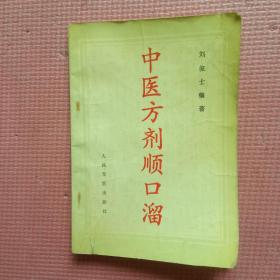 中医方剂顺口溜
刘俊士编著
人民军医出版社